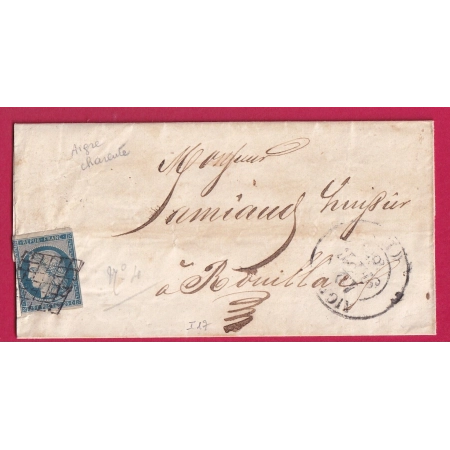 Aigre
charente
Monsieur
Lamiaud huissier
à Rouillac
REPUB. FRANC.
I 17